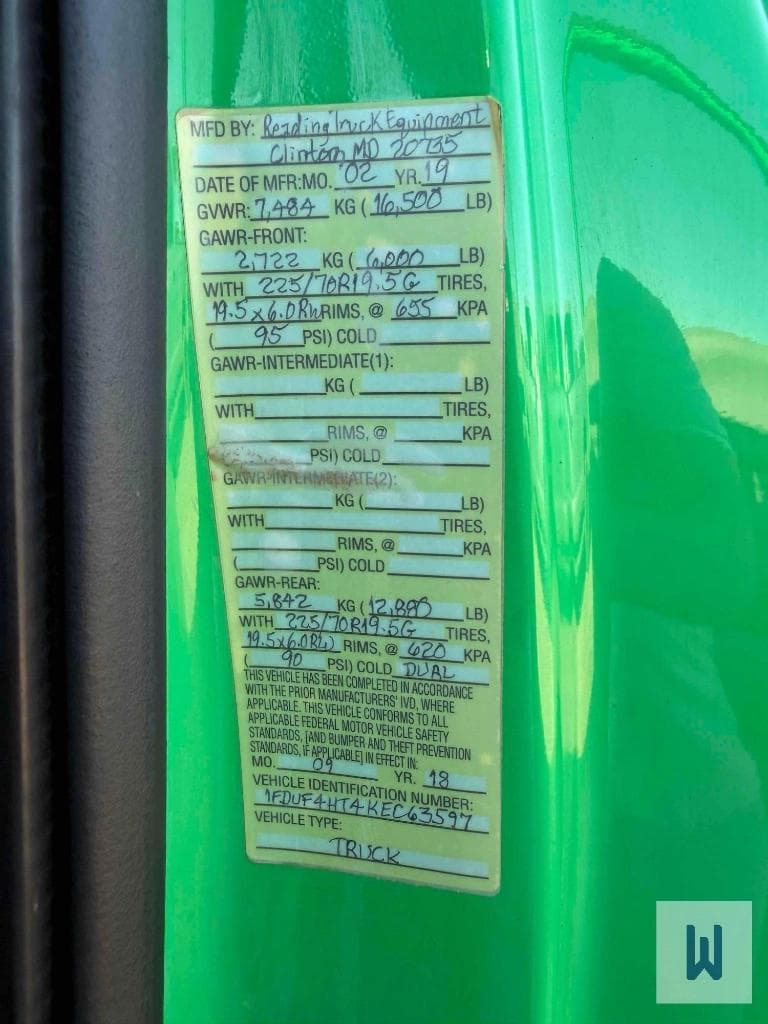 MFD BY: Reading Truck Equipment
Clinton MD 20735
DATE OF MFR:MO. 02 YR. 19
GVWR: 7,484 KG ( 16,500 LB)
GAWR-FRONT:
2,722 KG ( 6,000 LB)
WITH 225/70R19.5G TIRES,
19.5x6.0RW RIMS, @ 655 KPA
( 95 PSI) COLD
GAWR-INTERMEDIATE(1):
KG ( LB)
WITH TIRES,
RIMS, @ KPA
PSI) COLD
GAWR-INTERMEDIATE(2):
KG ( LB)
WITH TIRES,
RIMS, @ KPA
( PSI) COLD
GAWR-REAR:
5,842 KG ( 12,880 LB)
WITH 225/70R19.5G TIRES,
19.5x6.0RW RIMS, @ 620 KPA
( 90 PSI) COLD DUAL
THIS VEHICLE HAS BEEN COMPLETED IN ACCORDANCE
WITH THE PRIOR MANUFACTURERS' IVD, WHERE
APPLICABLE. THIS VEHICLE CONFORMS TO ALL
APPLICABLE FEDERAL MOTOR VEHICLE SAFETY
STANDARDS, [AND BUMPER AND THEFT PREVENTION
STANDARDS, IF APPLICABLE] IN EFFECT IN:
MO. 09 YR. 18
VEHICLE IDENTIFICATION NUMBER:
1FDUF4HT4KEC63597
VEHICLE TYPE:
TRUCK
W